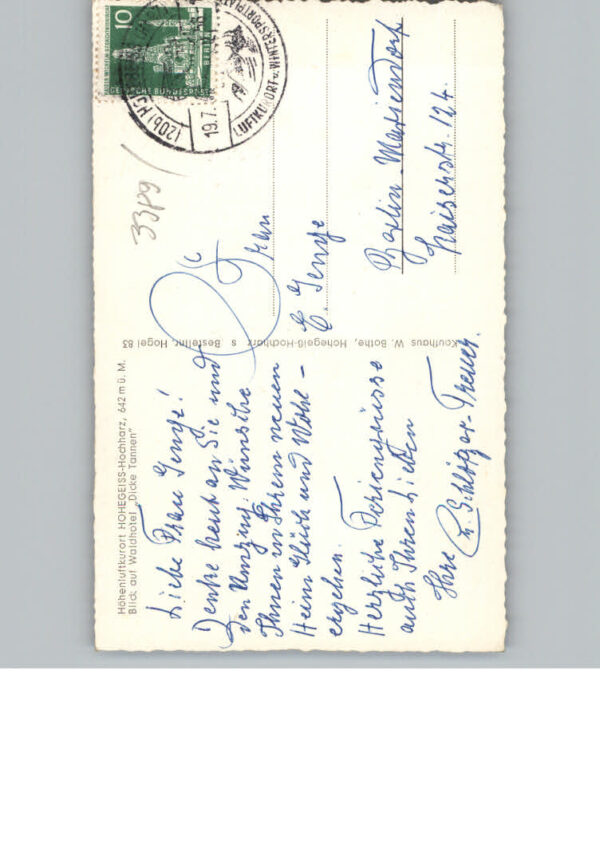 Höhenluftkurort HOHEGEISS-Hochharz, 642 m ü. M.
Blick auf Waldhotel „Dicke Tannen"
Liebe Frau Genge!
Denke heut an Sie und
den Umzug. Wünsche
Ihnen in Ihrem neuen
Heim Glück und Wohl-
ergehen.
Herzliche Feriengrüsse
auch Ihren Lieben
Ihre
Kaufhaus W. Bothe, Hohegeiß-Hochharz s Bestellnr. Hogei 83
10
DEUTSCHE BUNDESPOST
BERLIN
(20b) HOHEGEISS
19.7.
LUFTKURORT u. WINTERSPORTPLATZ
33pg
Frau
E. Genge
Berlin-Mariendorf
Kaiserstr. 124.